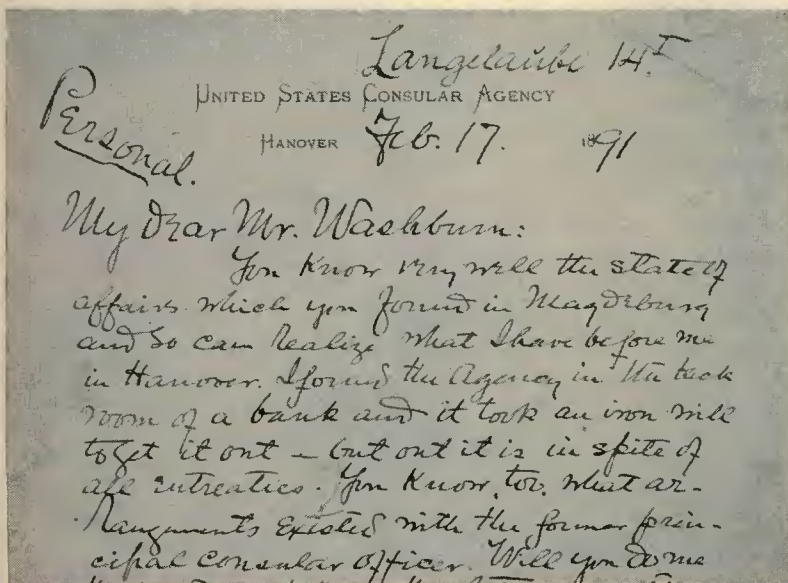 Langelaube 14 I
Personal.
UNITED STATES CONSULAR AGENCY
HANOVER Feb. 17. 1891
My Dear Mr. Washburn:
You Know very well the state of
affairs which you found in Magdeburg
and so can realize what I have before me
in Hanover. I found the Agency in the back
room of a bank and it took an iron will
to get it out – but out it is in spite of
all entreaties. You Know, too, what ar-
rangements Existed with the former prin-
cipal Consular Officer. Will you do me